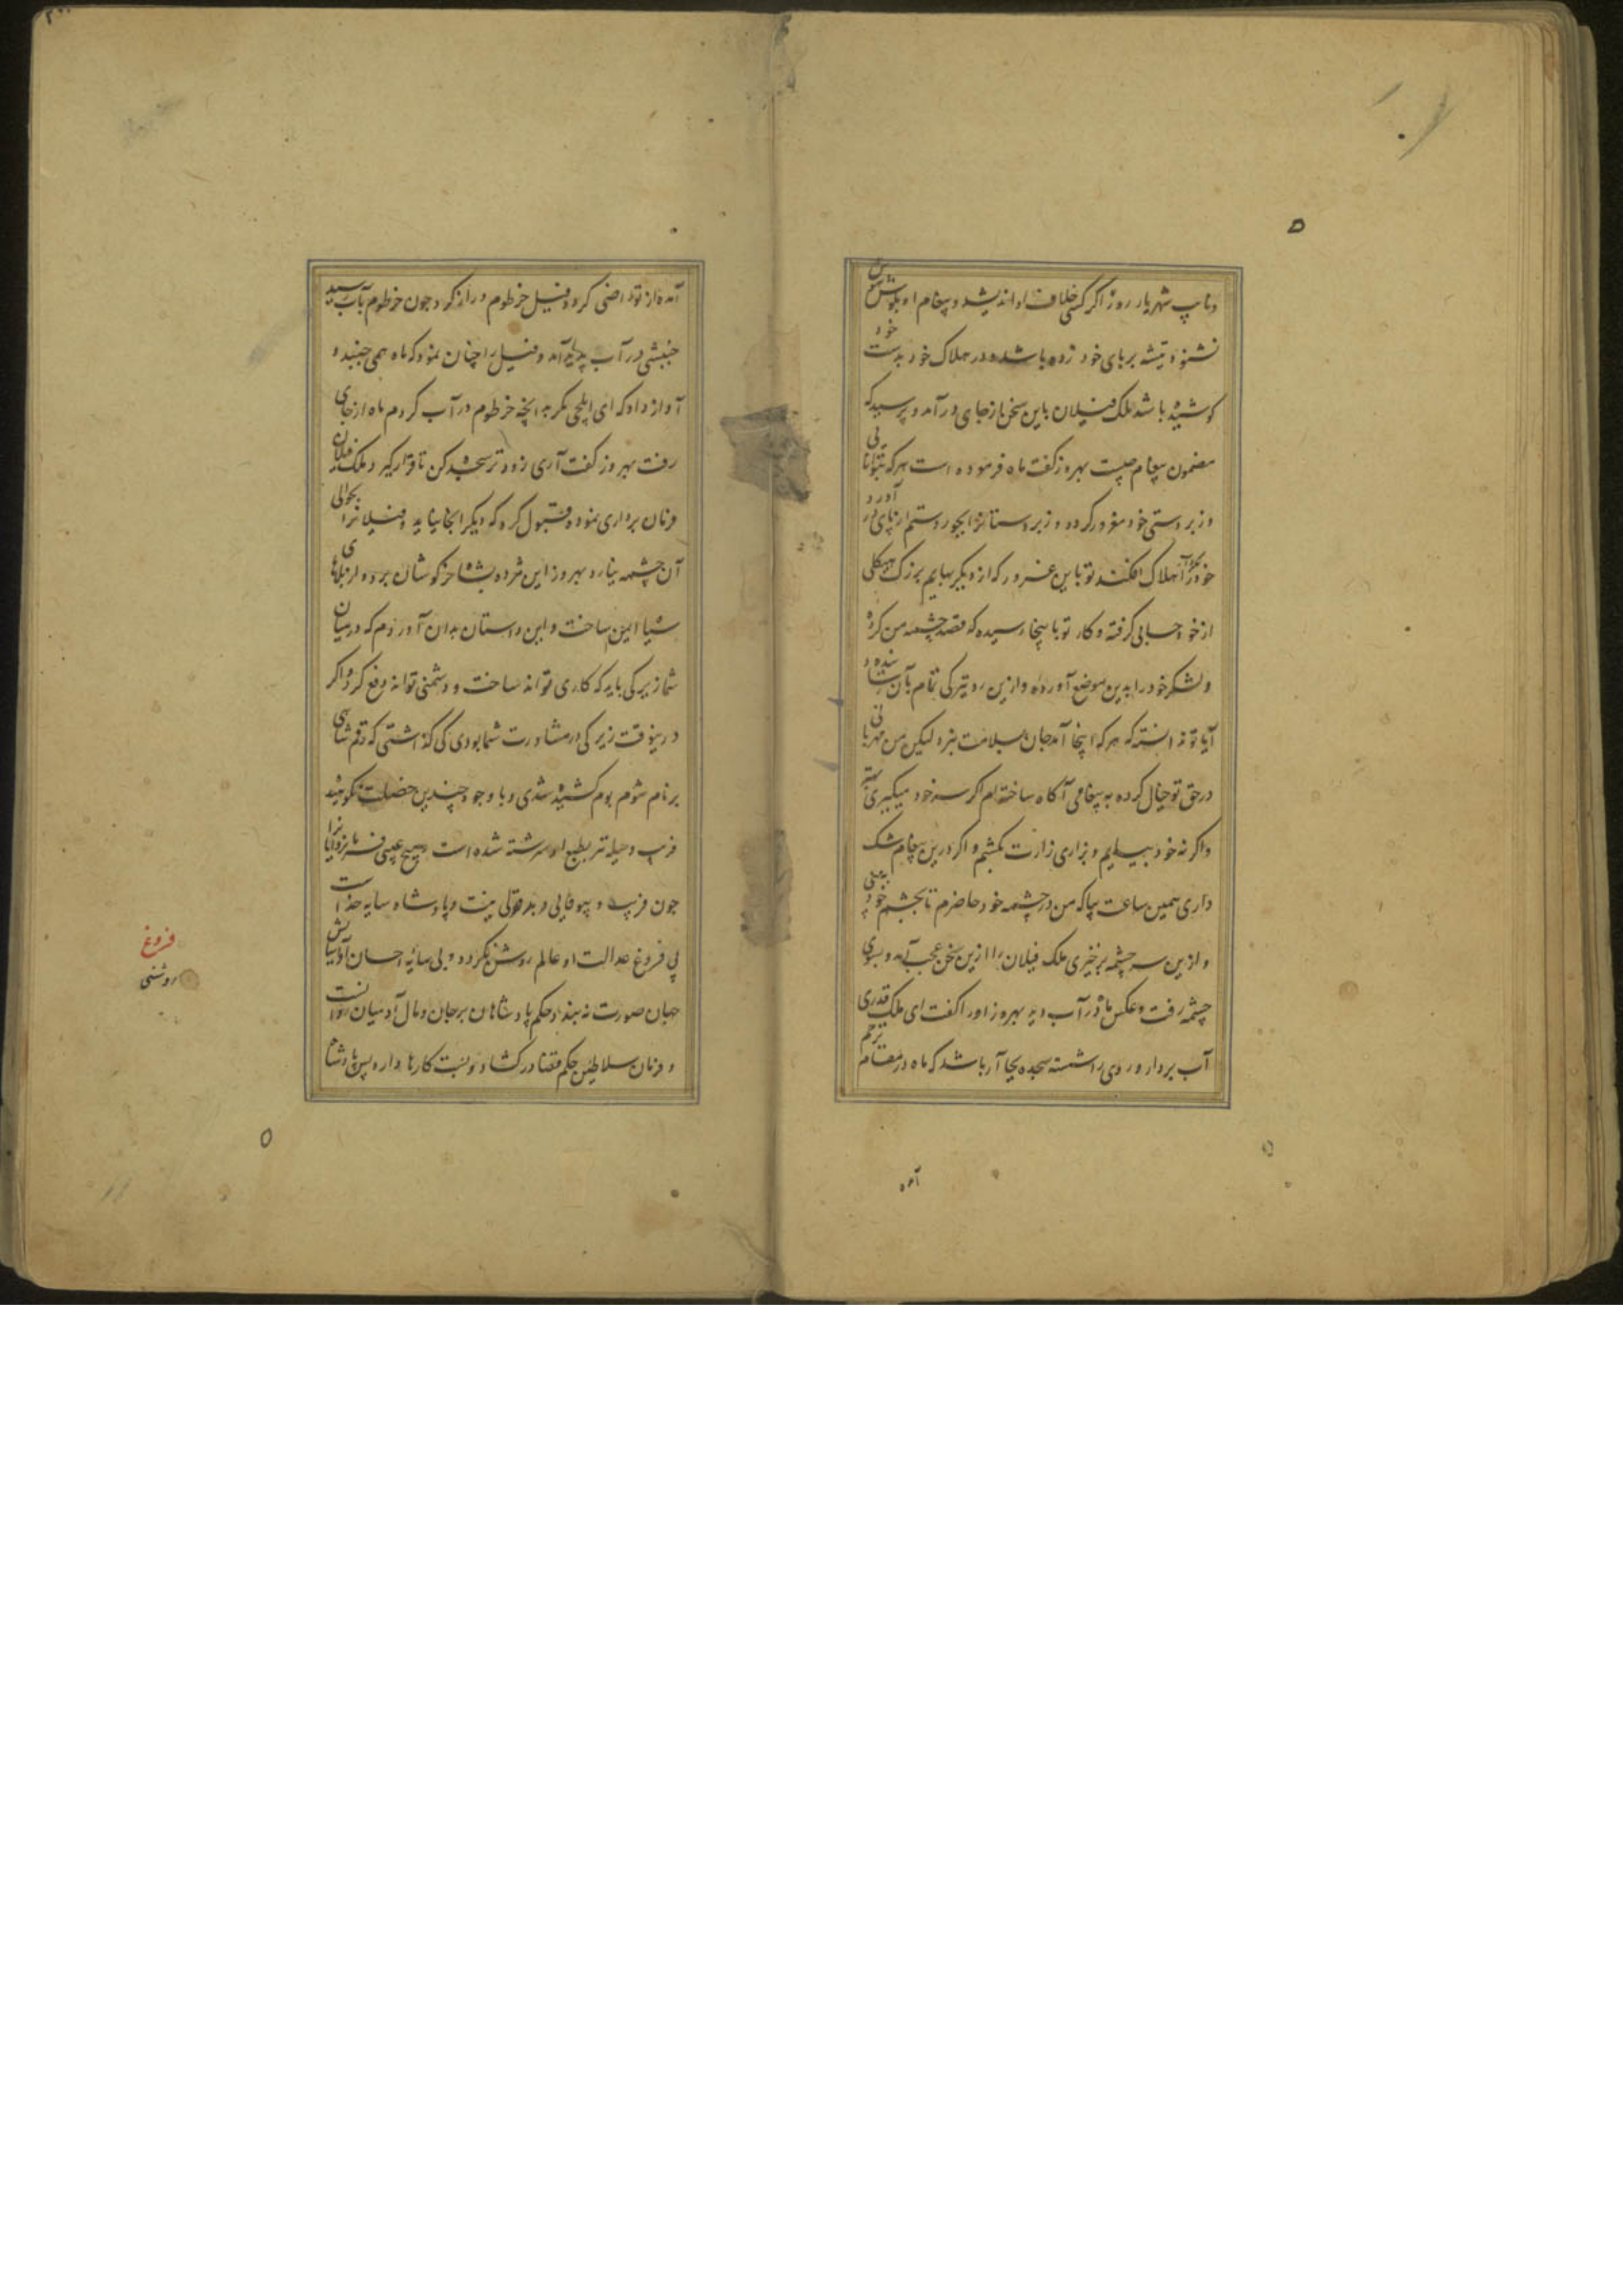 و نایب شهریار روز اگر کسی خلاف او اندیشد و پیغام او بگوش
نشنود تیشه بر پای خود زده باشد و در هلاک خود بدست خود
کوشیده باشد ملک فیلان باین سخن از جای درآمد و پرسید که
مضمون پیغام چیست بهروز گفت ماه فرموده است هر که بتوانایی
و زبردستی خود مغرور گردد و زیردستانرا بجور و ستم از پای درآورد
خود را هلاک افکند تو باین غرور که از دیگر بهایم بزرگ هیکلی
از خود حسابی گرفته و کار تو باینجا رسیده که قصد چشمه من کرده
و لشکر خود را بدین موضع آورده و ازین رو تیرگی تمام بآن رسانیده و
آیا تو ندانسته که هر که اینجا آمد جان بسلامت نبرد لیکن من مهربانی
در حق تو خیال کرده به پیغامی آگاه ساخته‌ام اگر سر خود میگیری بهتر
و اگر نه خود بیایم و بزاری زارت بکشم و اگر درین پیغام شک
داری همین ساعت بیا که من در چشمه خود حاضرم تا بچشم خود به بینی
و ازین سر چشمه برخیزی ملک فیلان را ازین سخن عجب آمد و بسوی
چشمه رفت و عکس ماه در آب دید بهروز او را گفت ای ملک قدری
آب بردار و روی را شسته سجده بجا آر باشد که ماه در مقام ترحم
آمده
آمده از تو راضی گردد فیل خرطوم دراز کرد و چون خرطوم بآب رسید
جنبشی در آب پدید آمد و فیل را چنان نمود که ماه همی جنبد و
آواز داد که ای ایلچی مگر بدانچه خرطوم در آب کردم ماه از جای
رفت بهروز گفت آری زودتر سجده کن تا قرار گیرد ملک فیلان
فرمان برداری نموده قبول کرد که دیگر انجا نیاید و فیلانرا بحوالی
آن چشمه نیارد بهروز این مژده بشاه خرگوشان برد و از بلای
ایمن ساخت و این داستان بدان آوردم که در میان
شما زیرکی باید که کاری تواند ساخت و دشمنی تواند دفع کرد و اگر
درینوقت زیرکی در مشاورت شما بودی کی گذاشتی که رقم شاهی
بر نام شوم بوم کشیده شدی و با وجود چندین خصلت نکوهیده
فریب و حیله نیز بطبع او سرشته شده است و هیچ عیبی فرمانروایانرا
چون فریب و بیوفایی و بدقولی نیست و پادشاه سایه خداست
بی فروغ عدالت او عالم روشن نگردد و بی سایه احسان او آسایش
جهان صورت نه بندد و حکم پادشاهان بر جان و مال آدمیان روانست
و فرمان سلاطین حکم قضا در گشاد و بست کارها دارد پس پادشاه
فروغ
روشنی